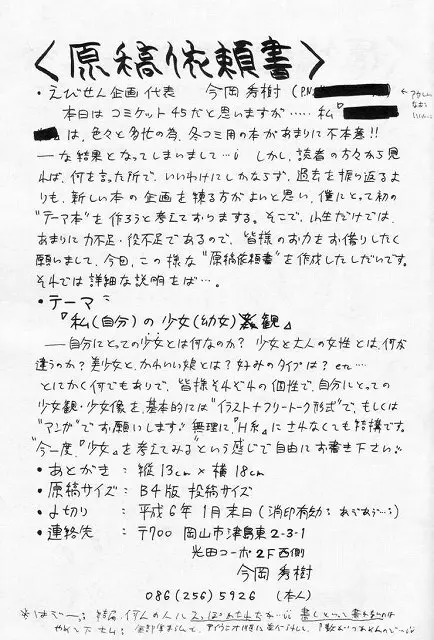 〈原稿依頼書〉
・えびせん企画代表 今岡秀樹(P.N.
本日はコミケット45だと思いますが……私『
は、色々と多忙の為、冬コミ用の本があまりに不本意!!
―な結果となってしまいまして…。しかし、読者の方々から見
れば、何を言った所で、いいわけにしかならず、過去を振り返るよ
りも、新しい本の企画を練る方がよいと思い、僕にとって初の
"テーマ本"を作ろうと考えております。そこで、小生だけでは、
あまりに力不足・役不足であるので、皆様のお力をお借りしたく
願いまして、今回、この様な"原稿依頼書"を作成ししだいです。
それでは詳細な説明をば…。
・テーマ：
『私(自分)の少女(幼女)観』
―自分にとっての少女とは何なのか？少女と大人の女性とは、何が
違うのか？美少女と、かわいい娘とは？好みのタイプは？etc…
とにかく何でもありで、皆様それぞれの個性で、自分にとっての
少女観・少女像を、基本的には"イラスト＋フリートーク形式"で、もしくは
"マンガ"でお願いします。無理に『H系』にされなくても結構です。
"今一度、『少女』を考えてみる"という感じで自由にお書き下さい。
・あとがき：縦13cm×横18cm
・原稿サイズ：B4版 投稿サイズ
・〆切り：平成6年1月末日(消印有効：
・連絡先：〒700 岡山市津島東2-3-1
光田コーポ2F西側
今岡秀樹
086(256)5926 (本人)